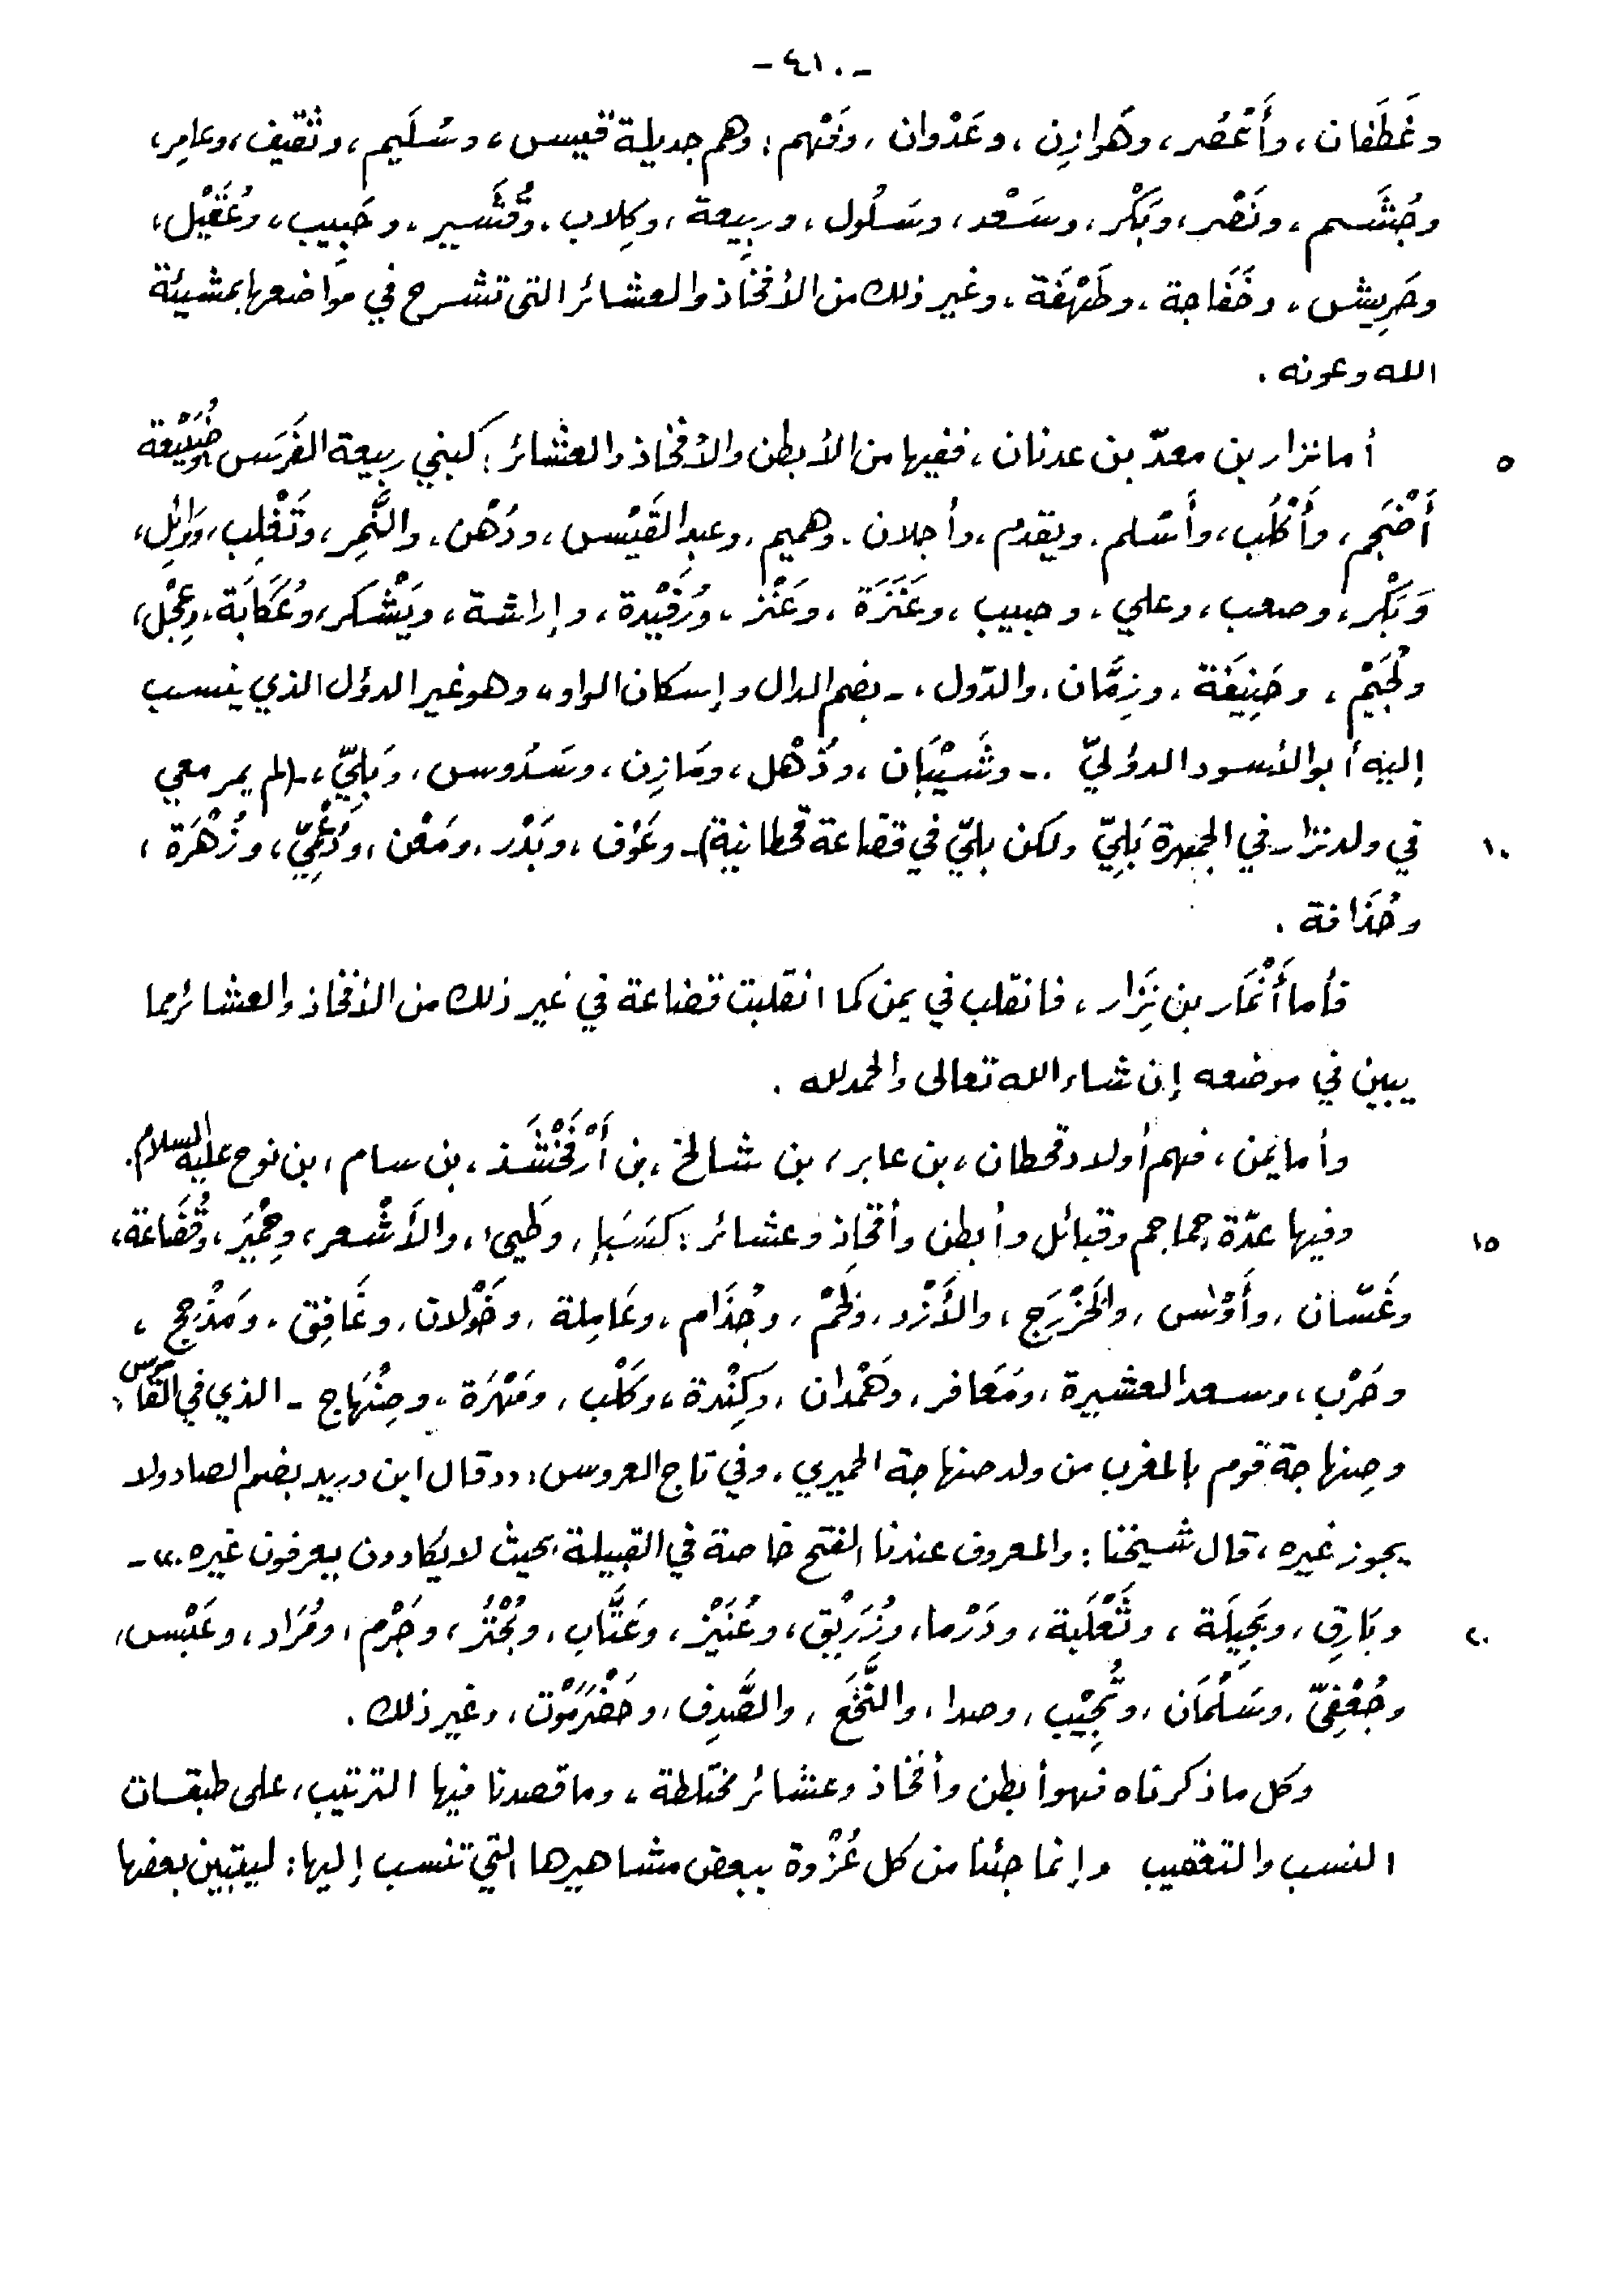 - ٤١٠ -
وغَطَفان، وأَعْصُر، وهَوازِن، وعَدْوان، وفَهْم؛ وهم جديلة قيس، وسُلَيم، وثقيف، وعامِر،
وجُشَم، ونَصْر، وبَكْر، وسَعْد، وسَلُول، وربِيعة، وكِلاب، وقُشَير، وحَبِيب، وعُقَيْل،
وحَرِيش، وخَفَاجة، وطَهْفَة، وغير ذلك من الأفخاذ والعشائر التي تشرح في مواضعها بمشيئة
الله وعونه.
٥ أما نزار بن معدّ بن عدنان، ففيها من الأبطن والأفخاذ والعشائر: كبني ربيعة الفَرَس وضُبَيْعة
أَضْجَم، وأَكْلُب، وأَسْلم، ويقدم، وأجلان، وهميم، وعبد القَيْس، ودُهْن، والنَّمِر، وتَغْلِب، ووَائِل،
وَبَكْر، وصعب، وعلي، وحبيب، وعَنَزَة، وعَنْز، ورُفَيْدة، وإراشة، ويَشْكر، وعُكَابَة، وعِجْل،
ولُجَيْم، وحَنِيفَة، وزِمَّان، والدّول، - بضم الدال وإسكان الواو، وهو غير الدؤل الذي ينسب
إليه أبو الأسود الدؤليّ. - وشَيْبَان، وذُهْل، ومَازِن، وسَدُوس، وَبَلِيّ، - (لم يمر معي
١٠ في ولد نزار في الجمهرة بَلِيّ ولكن بليّ في قضاعة قحطانية) - وعَوْف، وبَدْر، ومَعْن، ودُعْمِيّ، وزُهْرَة،
وحُذَافة.
فأما أَنْمَار بن نِزَار، فانقلب في يمن كما انقلبت قضاعة في غير ذلك من الأفخاذ والعشائر مما
يبين في موضعه إن شاء الله تعالى والحمد لله.
وأما يمن، فهم أولاد قحطان، بن عابر، بن شالخ، بن أَرْفَخْشَذ، بن سام، بن نوح عليه السلام.
١٥ وفيها عدّة جماجم وقبائل وأبطن وأفخاذ وعشائر: كسَبَإ، وطَيء، والأَشْعر، وحِمْيَر، وقُضَاعة،
وغَسّان، وأَوْس، والخَزْرَج، والأَزْد، ولَخْم، وجُذَام، وعَامِلة، وخَوْلان، وغَافِق، ومَذْحج،
وحَرْب، وسعد العشيرة، ومَعَافر، وهَمْدان، وكِنْدة، وكَلْب، ومَهْرَة، وصِنْهَاج - الذي في القاموس:
وصِنهاجة قوم بالمغرب من ولد صنهاجة الحميري، وفي تاج العروس: «قال ابن دريد بضم الصاد ولا
يجوز غيره، قال شيخنا: والمعروف عندنا الفتح خاصة في القبيلة بحيث لا يكادون يعرفون غيره.» -
٢٠ وبَارِق، وبَجِيلَة، وثَعْلَبة، ودَرْما، وزُرَيْق، وعُنَيْز، وعَتَّاب، وبُحْتُر، وجَرْم، ومُرَاد، وعَبْس،
وجُعْفِيّ، وسَلْمَان، وتُجِيْب، وصدا، والنَّخَع، والصَّدِف، وحَضْرَمَوْت، وغير ذلك.
وكل ما ذكرناه فهو أبطن وأفخاذ وعشائر مختلطة، وما قصدنا فيها الترتيب، على طبقات
النسب والتعقيب وإنما جئنا من كل عُزْوة ببعض مشاهيرها التي تنسب إليها؛ ليتبين بعضها